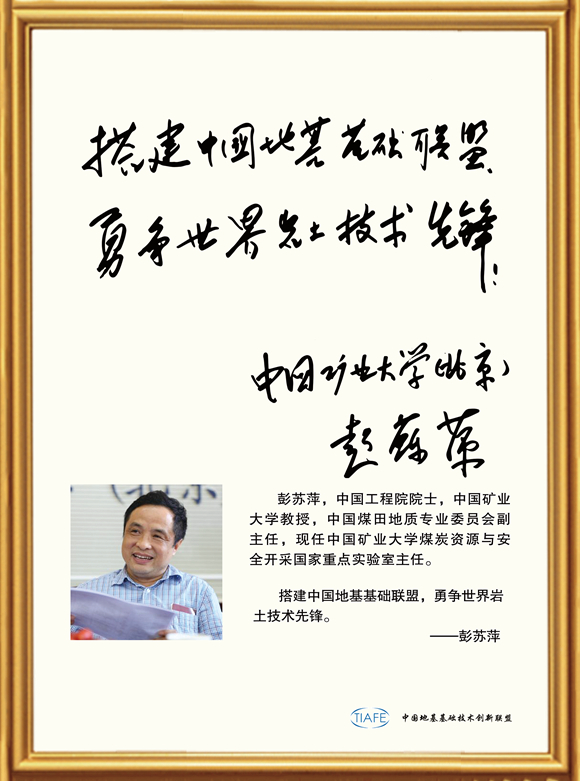 搭建中国地基基础联盟
勇争世界岩土技术先锋！
中国矿业大学（北京）
彭苏萍
彭苏萍，中国工程院院士，中国矿业
大学教授，中国煤田地质专业委员会副
主任，现任中国矿业大学煤炭资源与安
全开采国家重点实验室主任。
搭建中国地基基础联盟，勇争世界岩
土技术先锋。
——彭苏萍
TIAFE 中国地基基础技术创新联盟